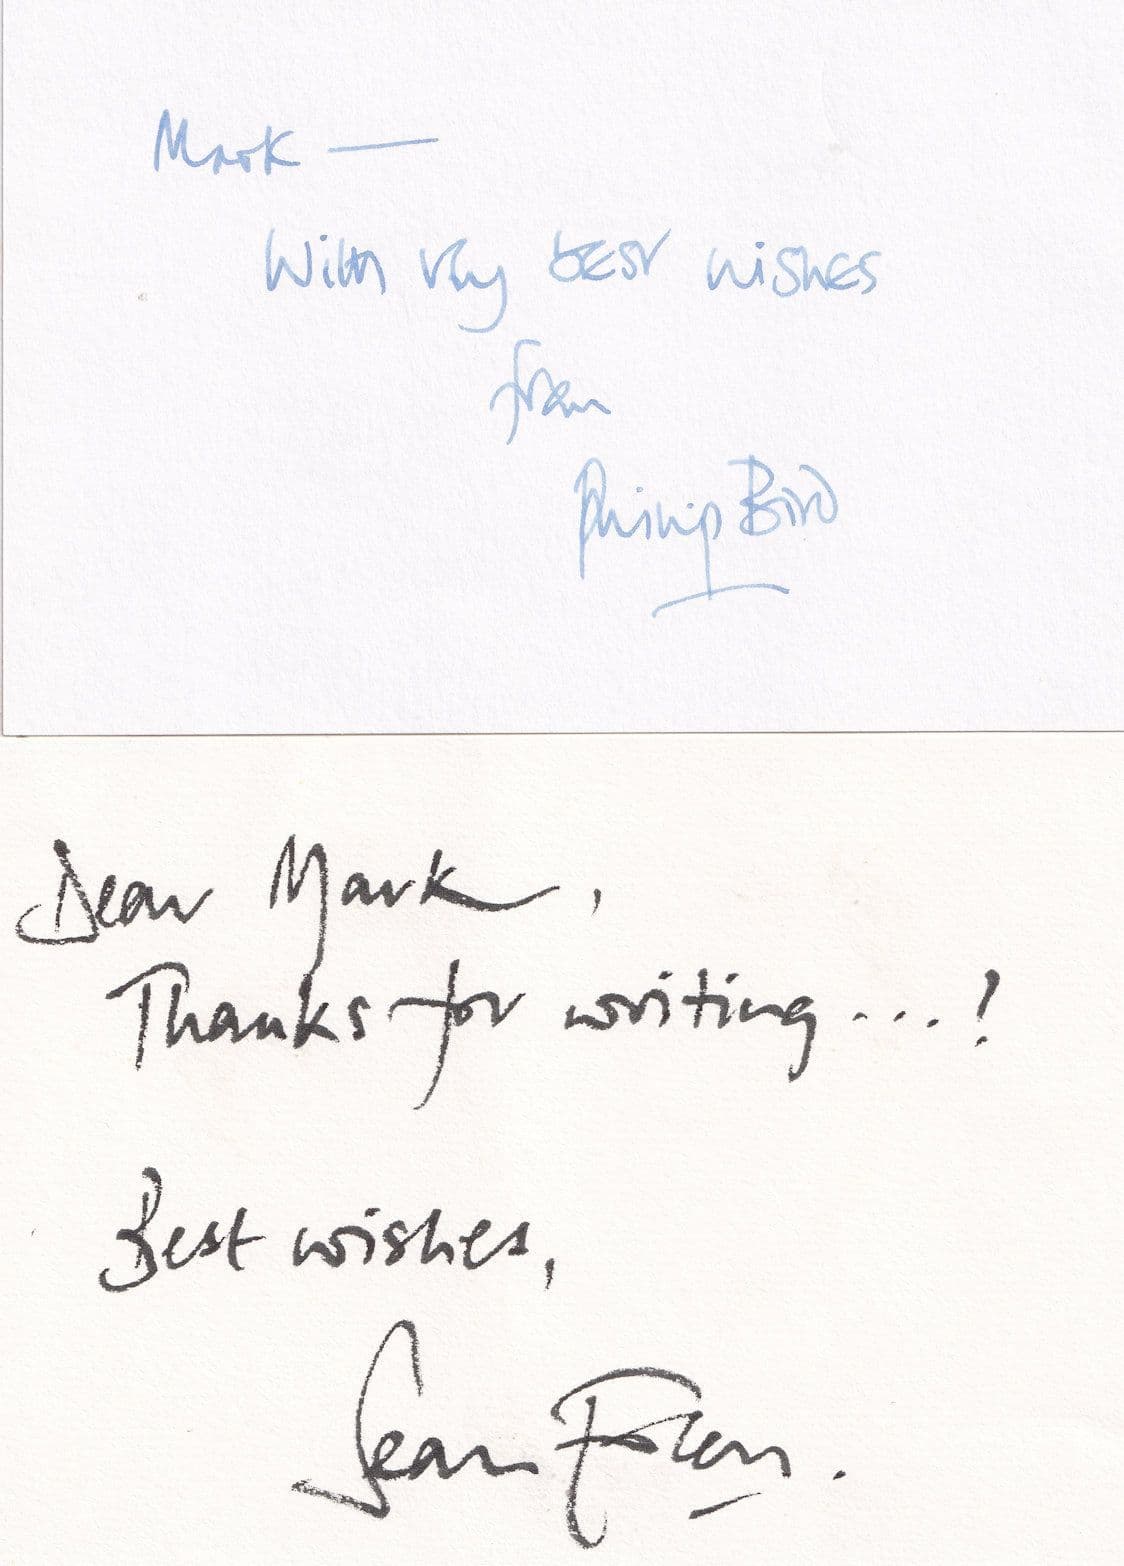 Mark —
With very best wishes
from
Philip Bird
Dear Mark,
Thanks for writing...!
Best wishes,
Sean